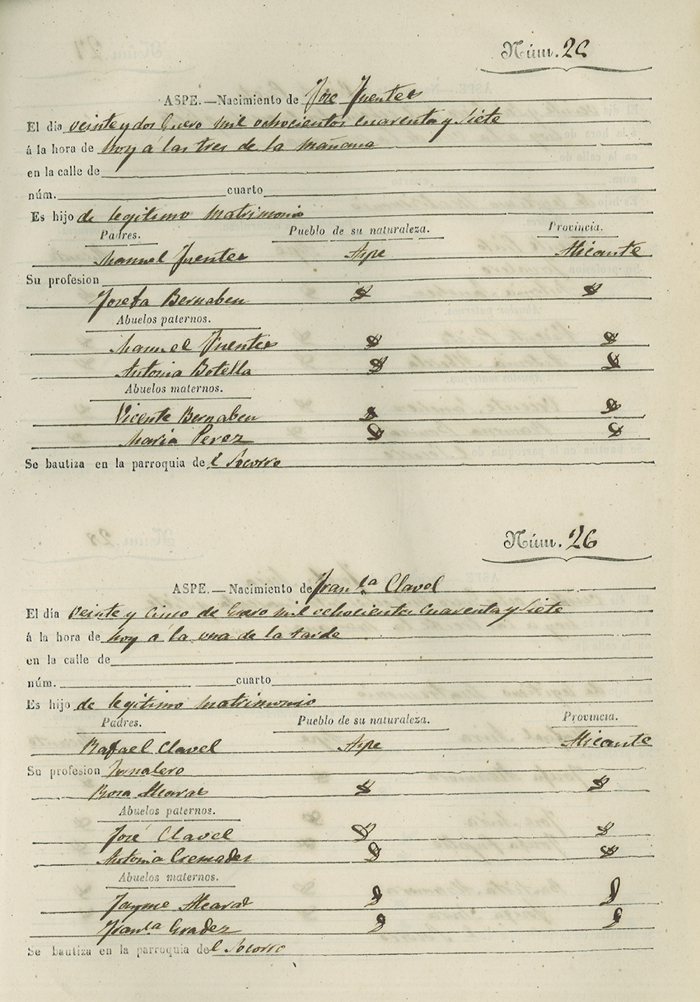 Núm. 26
ASPE.—Nacimiento de José Fuentes
El dia veinte y dos Enero mil ochocientos cuarenta y siete
á la hora de hoy a las tres de la mañana
en la calle de
núm. cuarto
Es hijo de legitimo matrimonio
Padres. Pueblo de su naturaleza. Provincia.
Manuel Fuentes Aspe Alicante
Su profesion
Josefa Bernabeu
Abuelos paternos.
Manuel Fuentes
Antonia Botella
Abuelos maternos.
Vicente Bernabeu
Maria Perez
Se bautiza en la parroquia del Socorro
Núm. 26
ASPE.—Nacimiento de Fran.ca Clavel
El dia veinte y cinco de Enero mil ochocientos cuarenta y siete
á la hora de hoy a la una de la tarde
en la calle de
núm. cuarto
Es hijo de legitimo matrimonio
Padres. Pueblo de su naturaleza. Provincia.
Rafael Clavel Aspe Alicante
Su profesion Jornalero
Rosa Alcaraz
Abuelos paternos.
José Clavel
Antonia Cremades
Abuelos maternos.
Jayme Alcaraz
Fran.ca
Se bautiza en la parroquia del Socorro